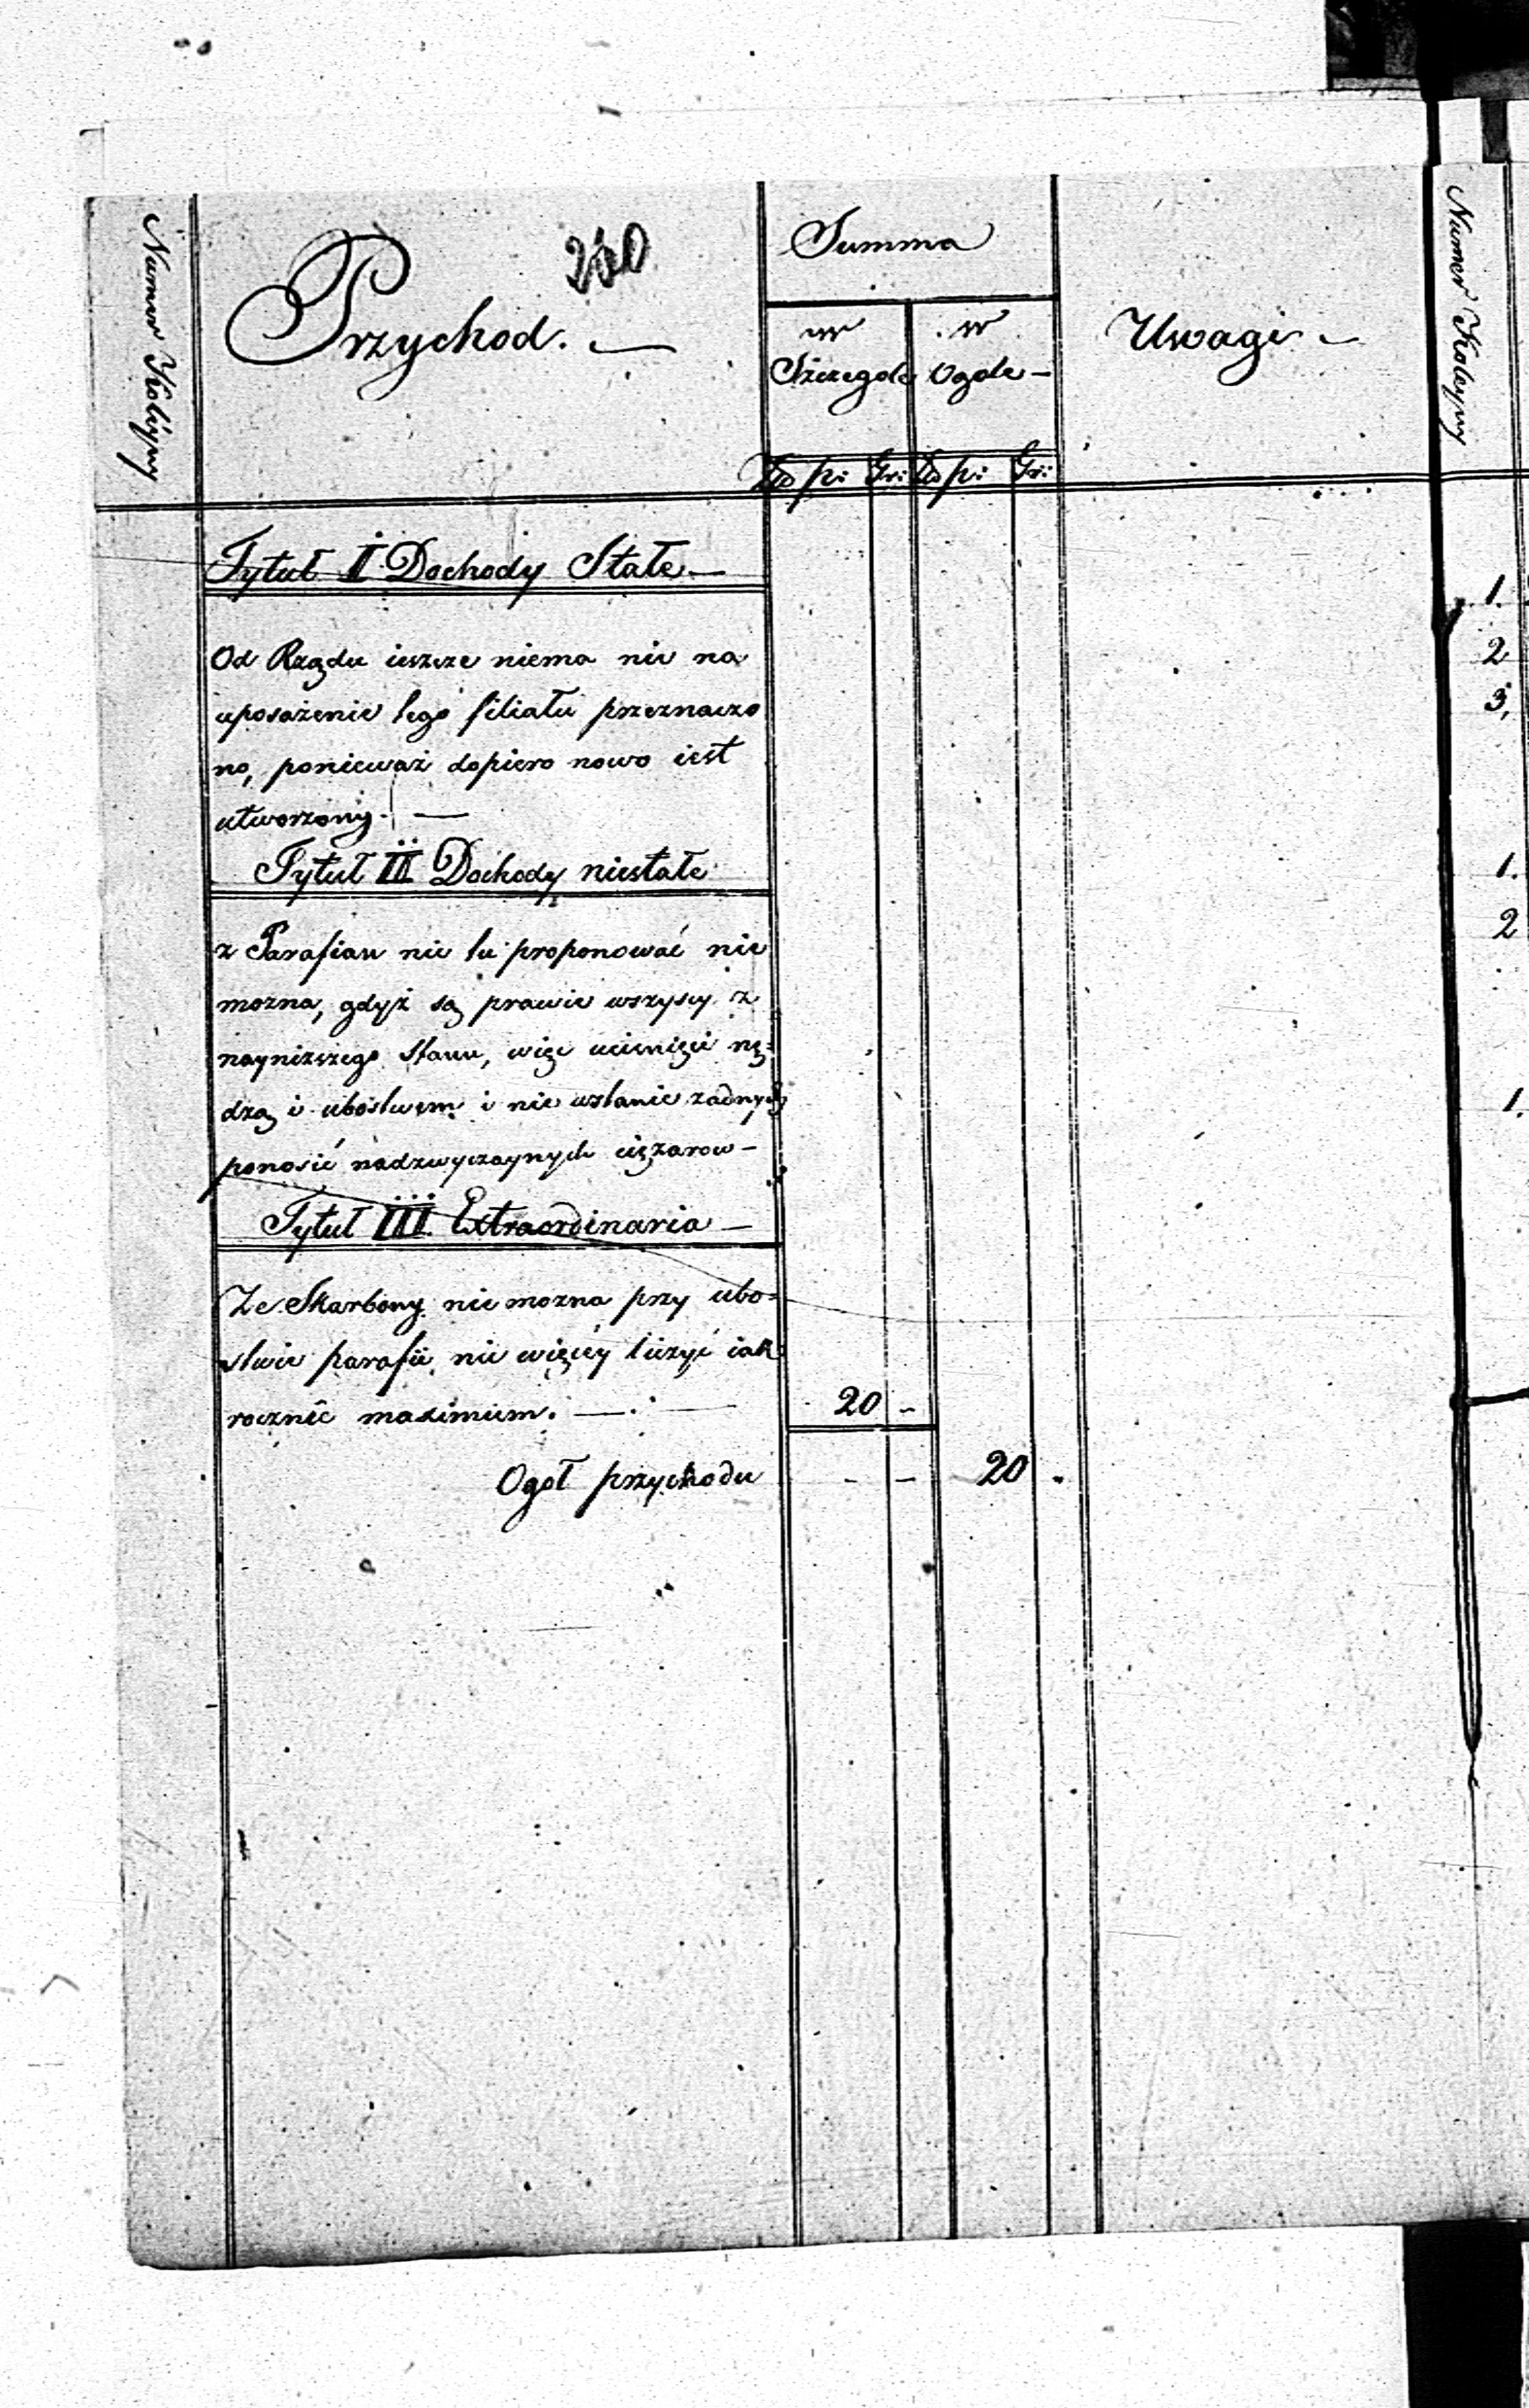 Numer Koleyny
Przychod. —
250
Summa
w Szczegole
w Ogole —
Uwagi —
Złp: Gr: Złp: Gr:
Numer Koleyny
Tytuł I Dochody Stałe —
Od Rządu ieszcze niema nic na
uposażenie tego filiału przeznaczo
no, ponieważ dopiero nowo iest
utworzony. —
Tytuł II Dochody niestałe
z Parafian nic tu proponować nie
mozna, gdyż są prawie wszyscy z
nayniższego stanu, więc ucisnięci nę=
dzą i ubóstwem i nie wstanie żadnych
ponosić nadzwyczaynych ciężarow —
Tytuł III Extraordinaria —
Ze Skarbony nie mozna przy ubo=
stwie parafii, nic więcéy liczyć iak
rocznie maximum. — 20 -
Ogoł przychodu - - 20 -
1.
2
3,
1.
2
1.